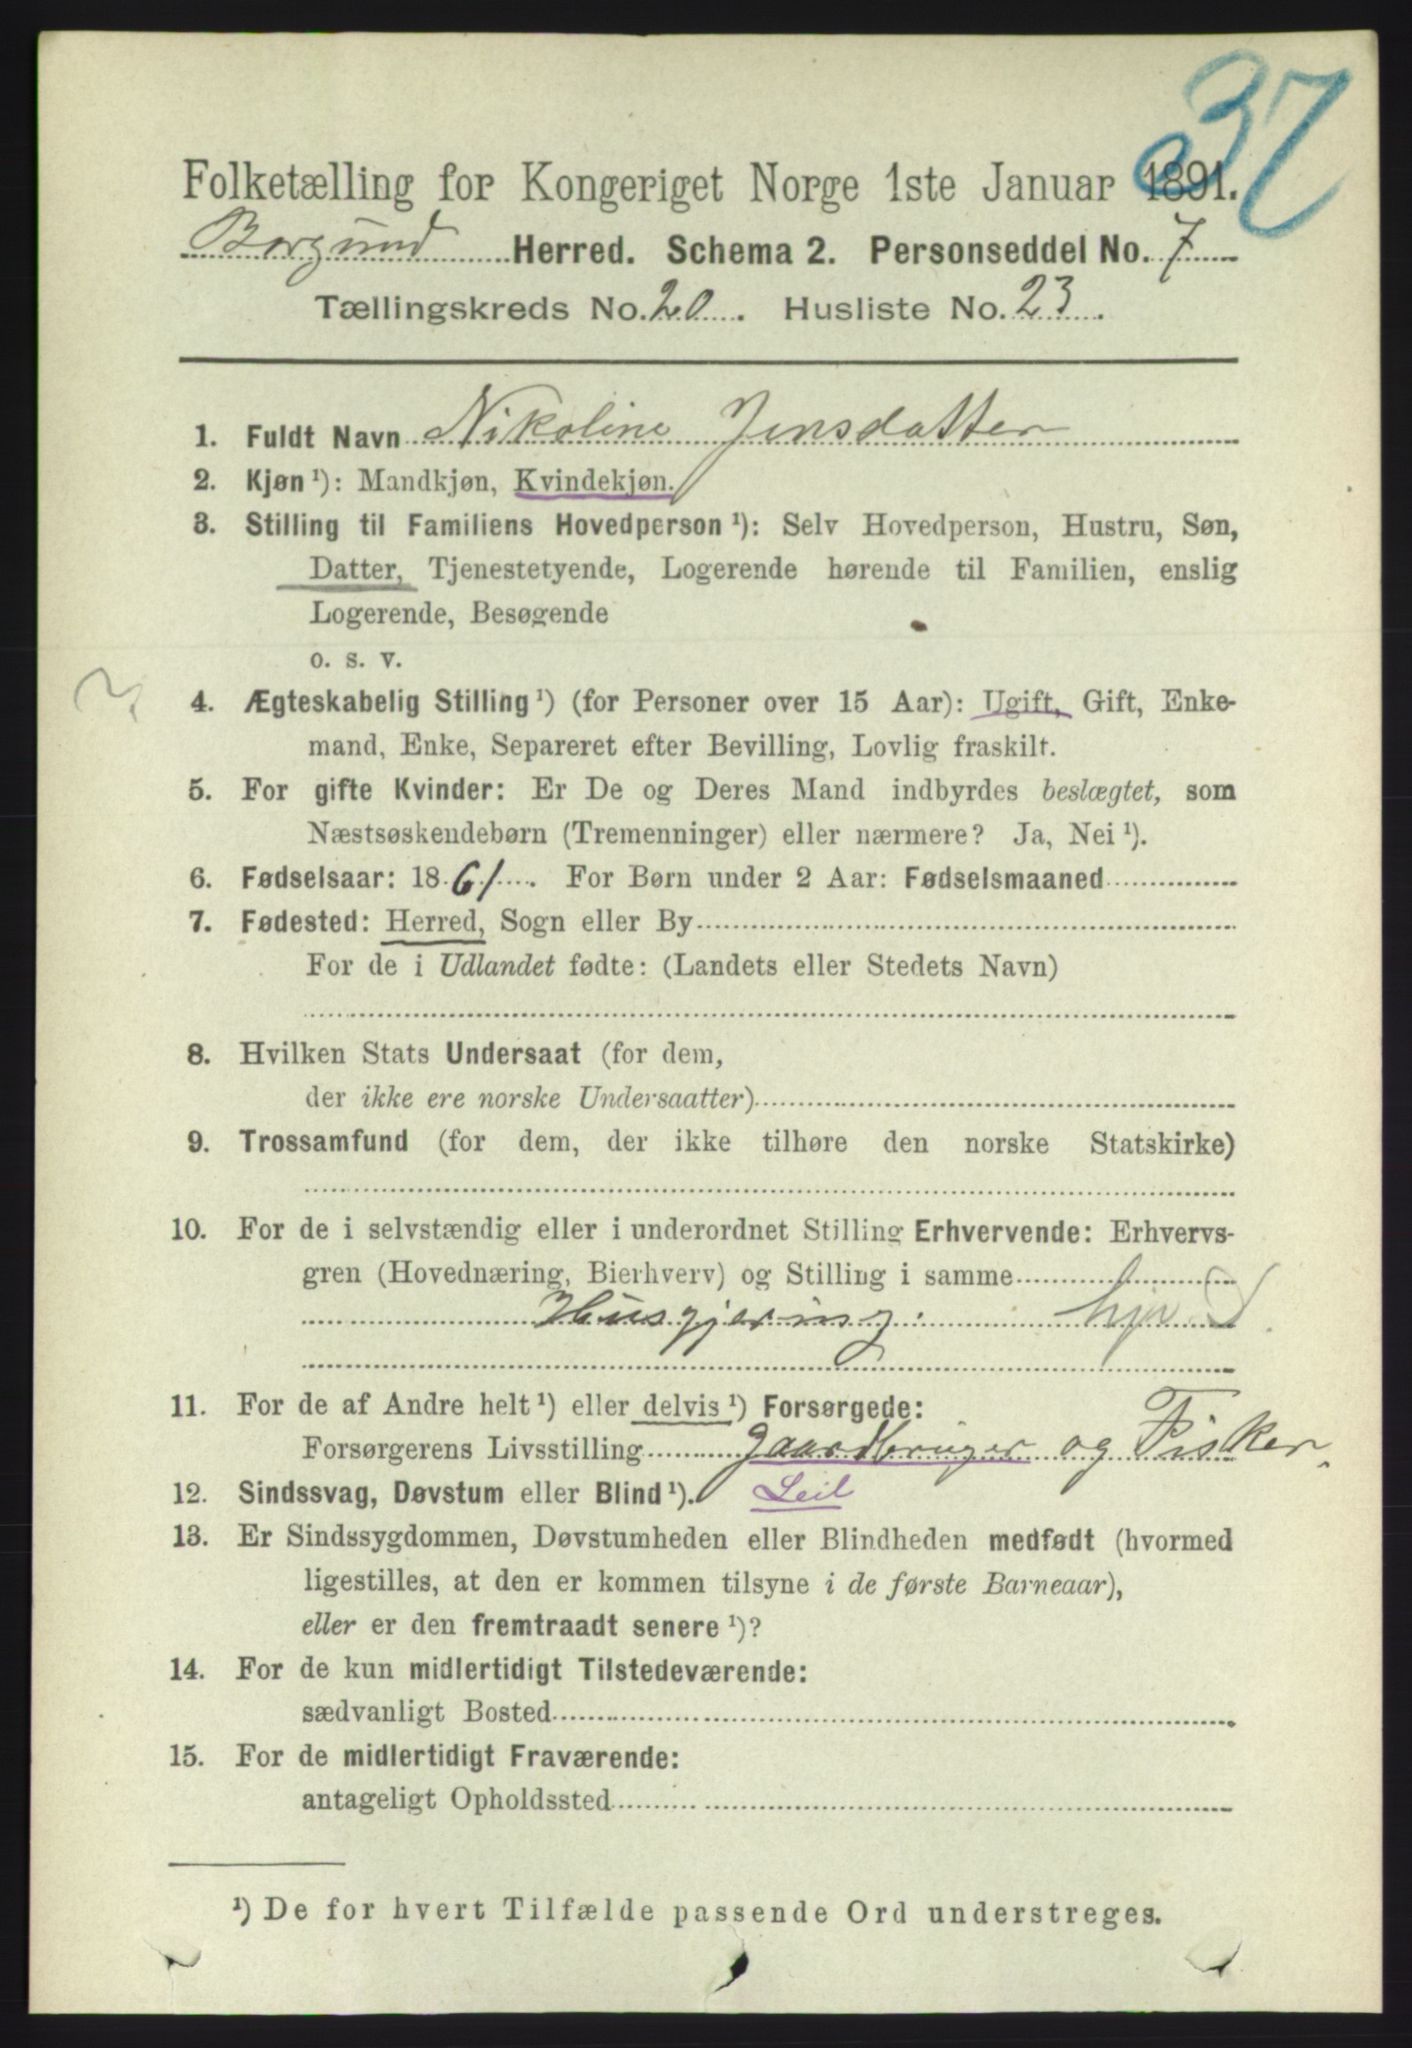 37
Folketælling for Kongeriget Norge 1ste Januar 1891.
Borgund Herred. Schema 2. Personseddel No. 7
Tællingskreds No. 20. Husliste No. 23.
1. Fuldt Navn Nikoline Jensdatter
2. Kjøn ¹): Mandkjøn, Kvindekjøn.
3. Stilling til Familiens Hovedperson ¹): Selv Hovedperson, Hustru, Søn,
Datter, Tjenestetyende, Logerende hørende til Familien, enslig
Logerende, Besøgende
o. s. v.
4. Ægteskabelig Stilling ¹) (for Personer over 15 Aar): Ugift, Gift, Enke-
mand, Enke, Separeret efter Bevilling, Lovlig fraskilt.
5. For gifte Kvinder: Er De og Deres Mand indbyrdes beslægtet, som
Næstsøskendebørn (Tremenninger) eller nærmere? Ja, Nei ¹).
6. Fødselsaar: 1861. For Børn under 2 Aar: Fødselsmaaned
7. Fødested: Herred, Sogn eller By
For de i Udlandet fødte: (Landets eller Stedets Navn)
8. Hvilken Stats Undersaat (for dem,
der ikke ere norske Undersaatter)
9. Trossamfund (for dem, der ikke tilhøre den norske Statskirke)
10. For de i selvstændig eller i underordnet Stilling Erhvervende: Erhvervs-
gren (Hovednæring, Bierhverv) og Stilling i samme
Husgjerning. hjv D
11. For de af Andre helt ¹) eller delvis ¹) Forsørgede:
Forsørgerens Livsstilling Gaardbruger og Fisker.
12. Sindssvag, Døvstum eller Blind ¹). Leil
13. Er Sindssygdommen, Døvstumheden eller Blindheden medfødt (hvormed
ligestilles, at den er kommen tilsyne i de første Barneaar),
eller er den fremtraadt senere ¹)?
14. For de kun midlertidigt Tilstedeværende:
sædvanligt Bosted
15. For de midlertidigt Fraværende:
antageligt Opholdssted
¹) De for hvert Tilfælde passende Ord understreges.